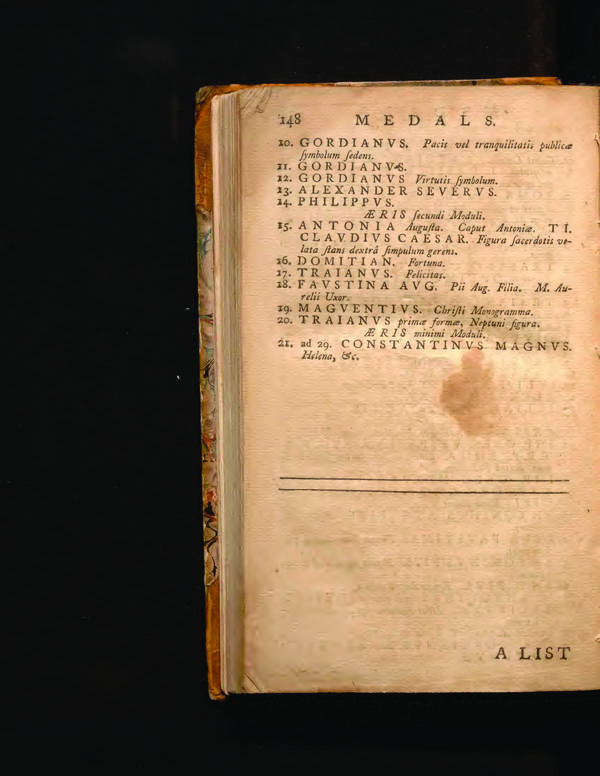 148 MEDALS.
10. GORDIANVS. Pacis vel tranquilitatis publicæ
ſymbolum ſedens.
11. GORDIANVS.
12. GORDIANVS Virtutis ſymbolum.
13. ALEXANDER SEVERVS.
14. PHILIPPVS.
ÆRIS ſecundi Moduli.
15. ANTONIA Auguſta. Caput Antoniæ. TI.
CLAVDIVS CAESAR. Figura ſacerdotis ve-
lata ſtans dextrâ ſimpulum gerens.
16. DOMITIAN. Fortuna.
17. TRAIANVS. Felicitas.
18. FAVSTINA AVG. Pii Aug. Filia. M. Au-
relii Uxor.
19. MAGVENTIVS. Chriſti Monogramma.
20. TRAIANVS primæ formæ, Neptuni figura.
ÆRIS minimi Moduli.
21. ad 29. CONSTANTINVS MAGNVS.
Helena, &c.
A LIST